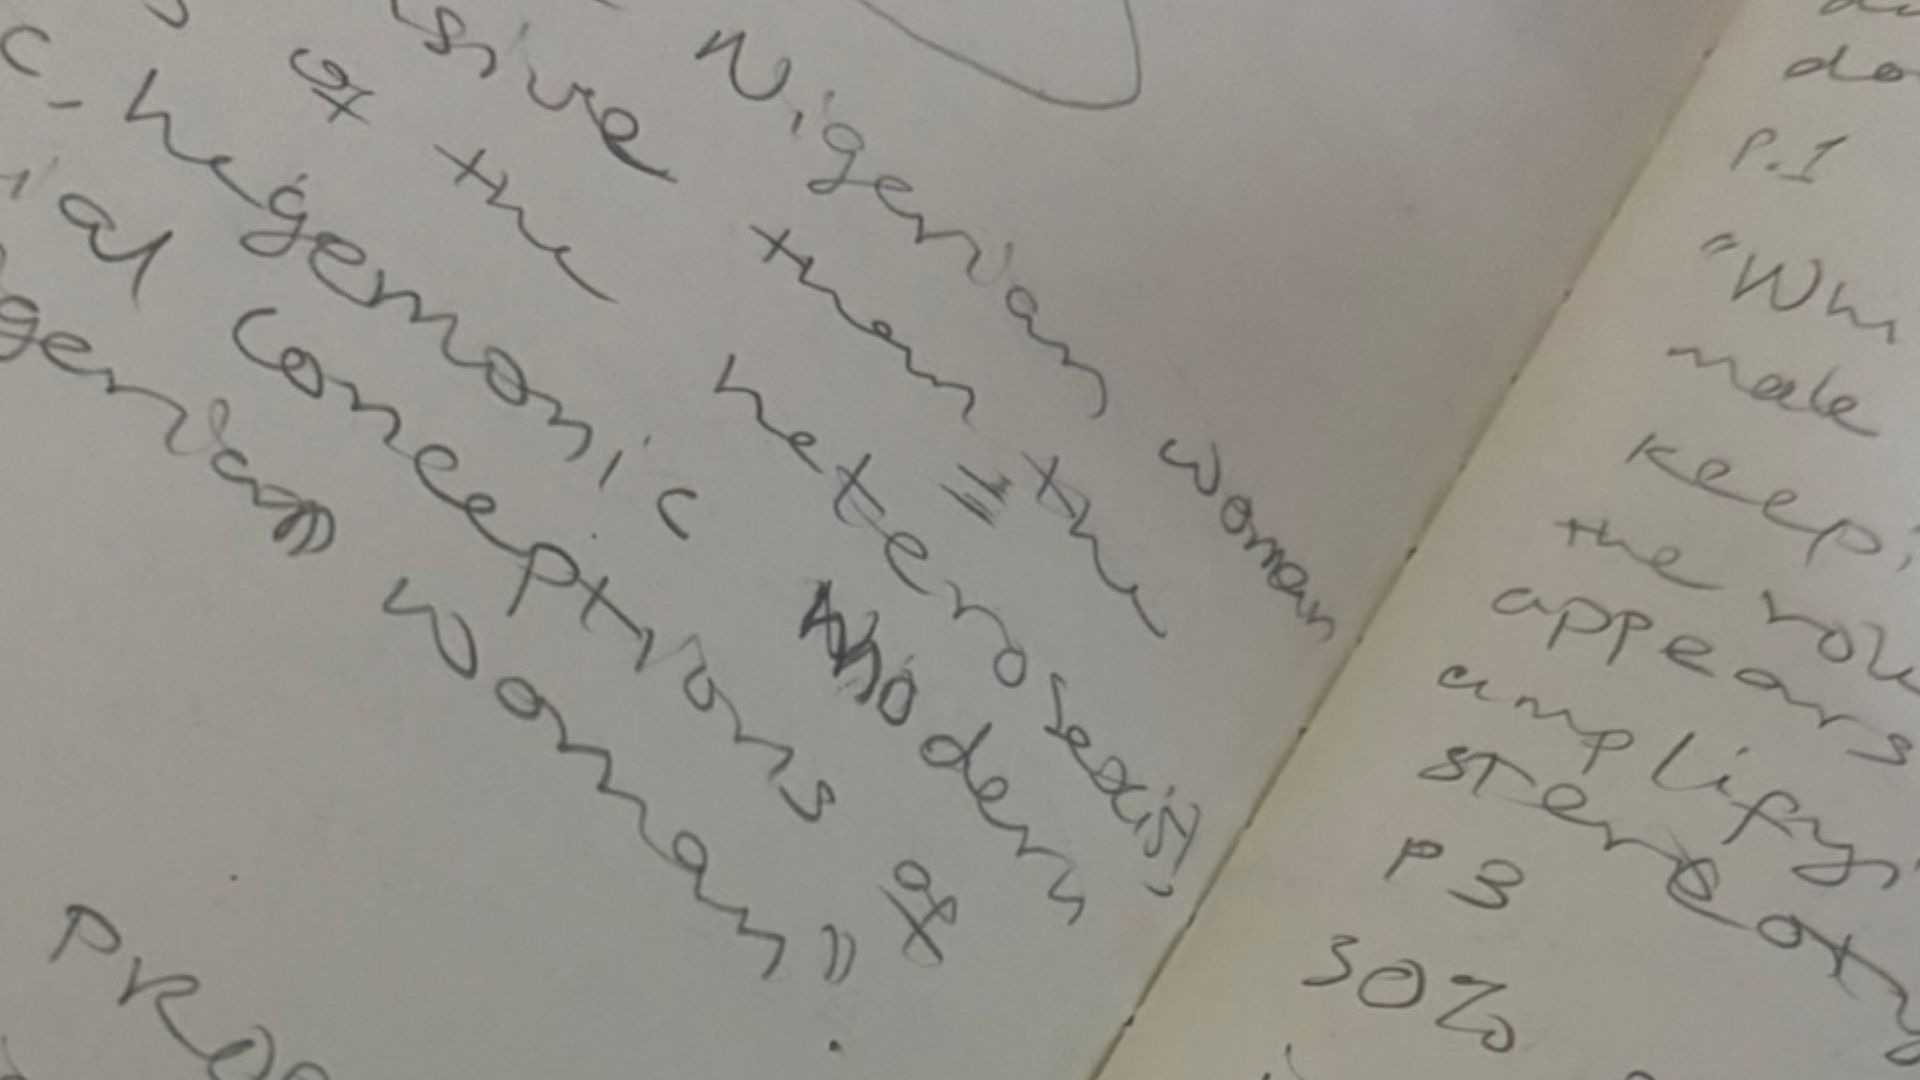 Nigerian woman
sive than the
of the heterosexist,
c-hegemonic modern
ial conceptions of
gerian woman".
PROC
do
P.1
"Whi
male
Keep
the rol
appears
amplify
stereoty
P3
30%